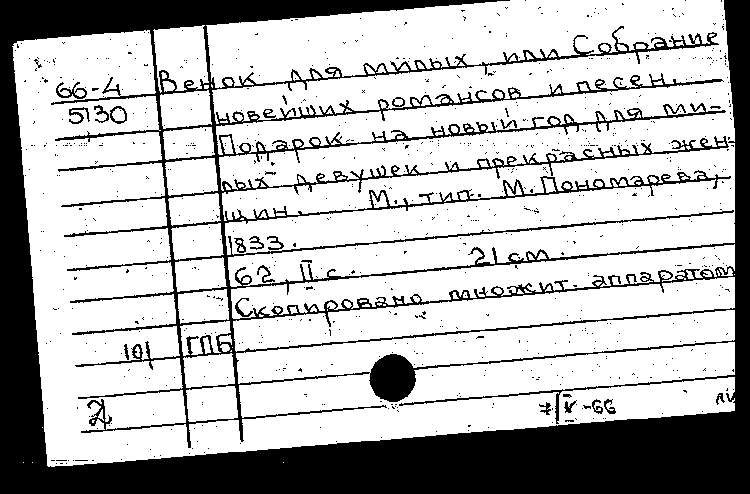 66-4 Венок для милых, или Собрание
5130 новейших романсов и песен.
Подарок на новый год для ми-
лых девушек и прекрасных жен-
щин. М., тип. М. Пономарева,
1833.
62, II с. 21 см.
Скопировано множит. аппаратом
101 ГПБ
7/V-66